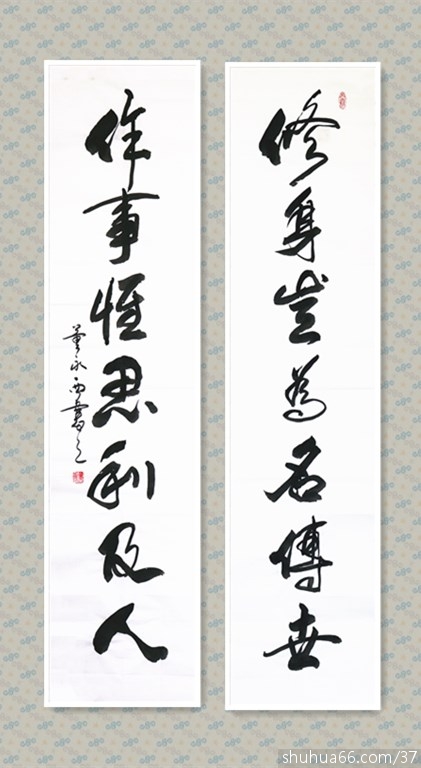 修身豈為名傳世
作事惟思利及人
董永西書之
shuhua66.com/37